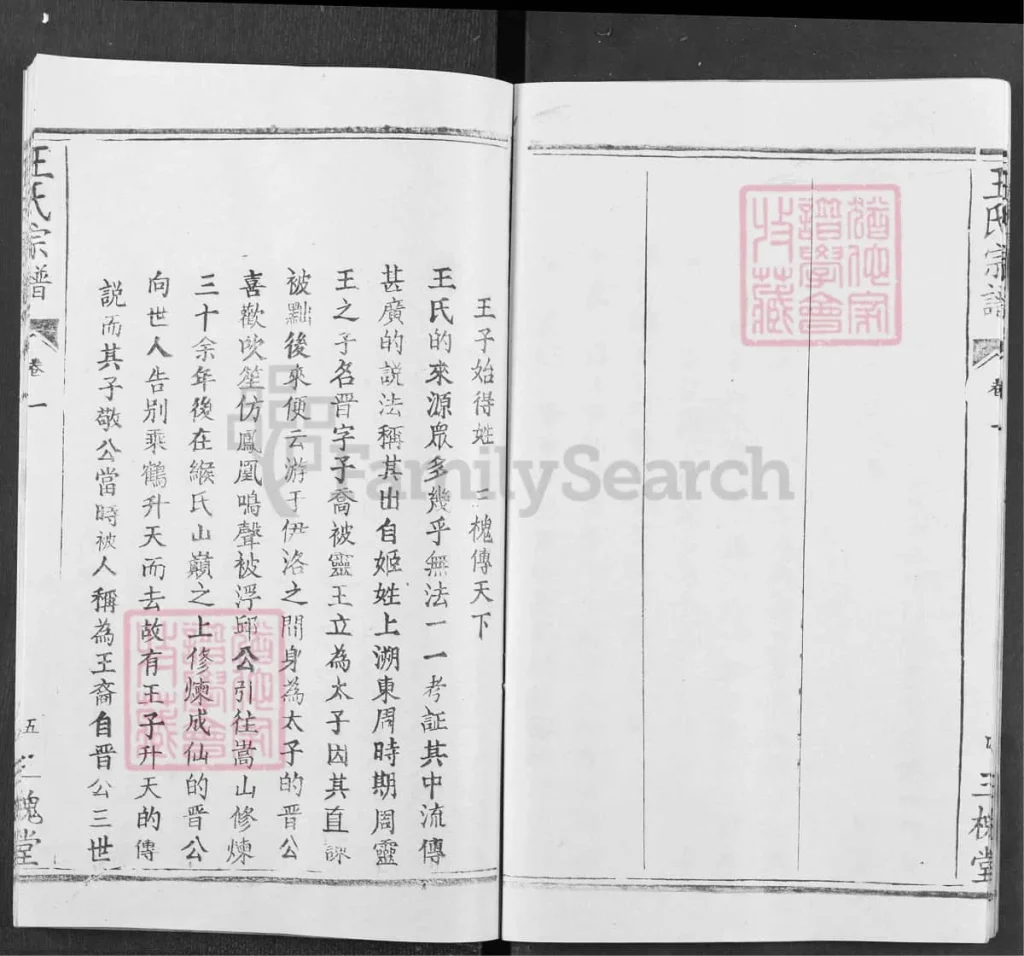 王氏宗譜
卷一
三槐堂
猶他家譜學會收藏
王子始得姓 三槐傳天下
王氏的來源眾多幾乎無法一一考証其中流傳
甚廣的説法稱其出自姬姓上溯東周時期周靈
王之子名晋字子喬被靈王立為太子因其直諫
被黜後來便云游于伊洛之間身為太子的晋公
喜歡吹笙仿鳳凰鳴聲被浮邱公引往嵩山修煉
三十余年後在緱氏山巔之上修煉成仙的晋公
向世人告别乘鶴升天而去故有王子升天的傳
説而其子敬公當時被人稱為王裔自晋公三世
王氏宗譜
卷一
五
三槐堂
猶他家譜學會收藏
FamilySearch